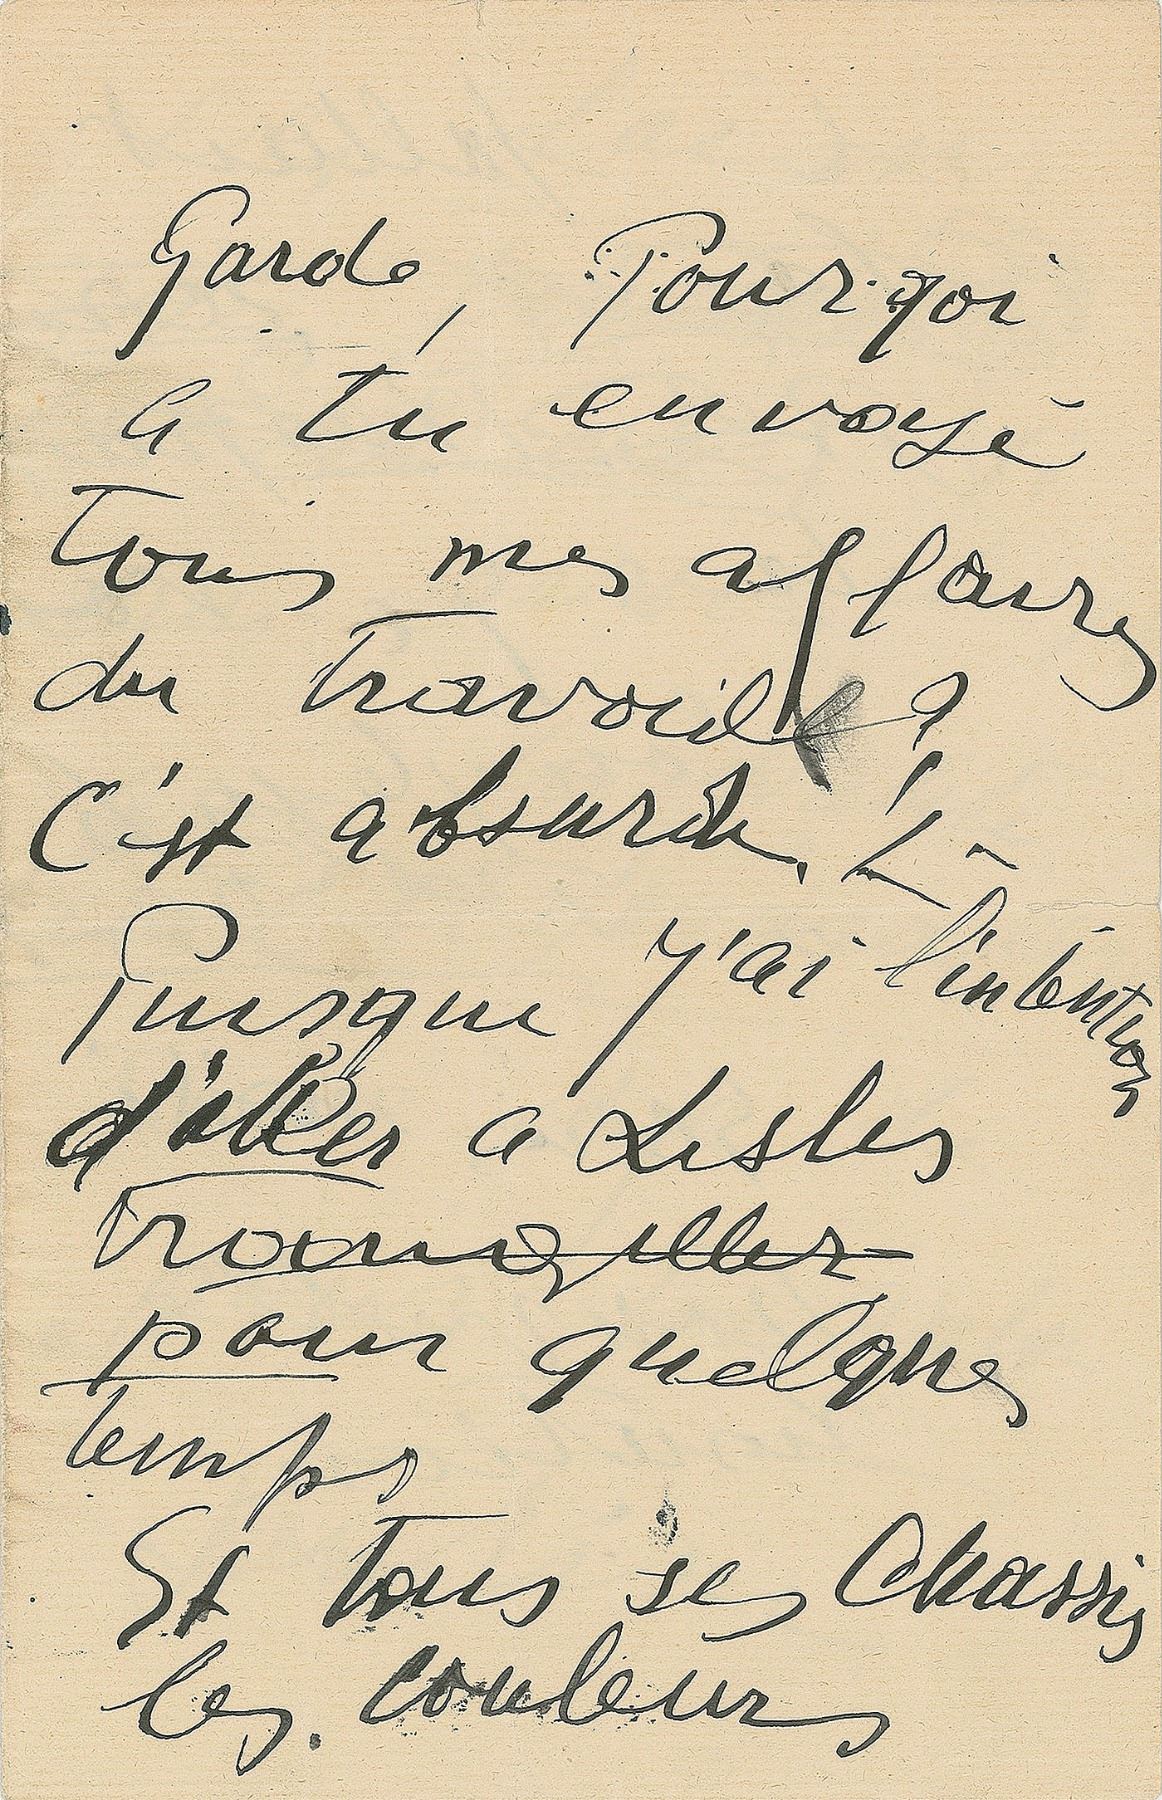 Garde, Pourqoi
a tu envoyé
tous mes affaires
du travaille ?
C'est absurde. !
Puisque j'ai l'intention
d'aller a Lesles
pour quelques
temps
Et tous ses Chassis
les couleurs